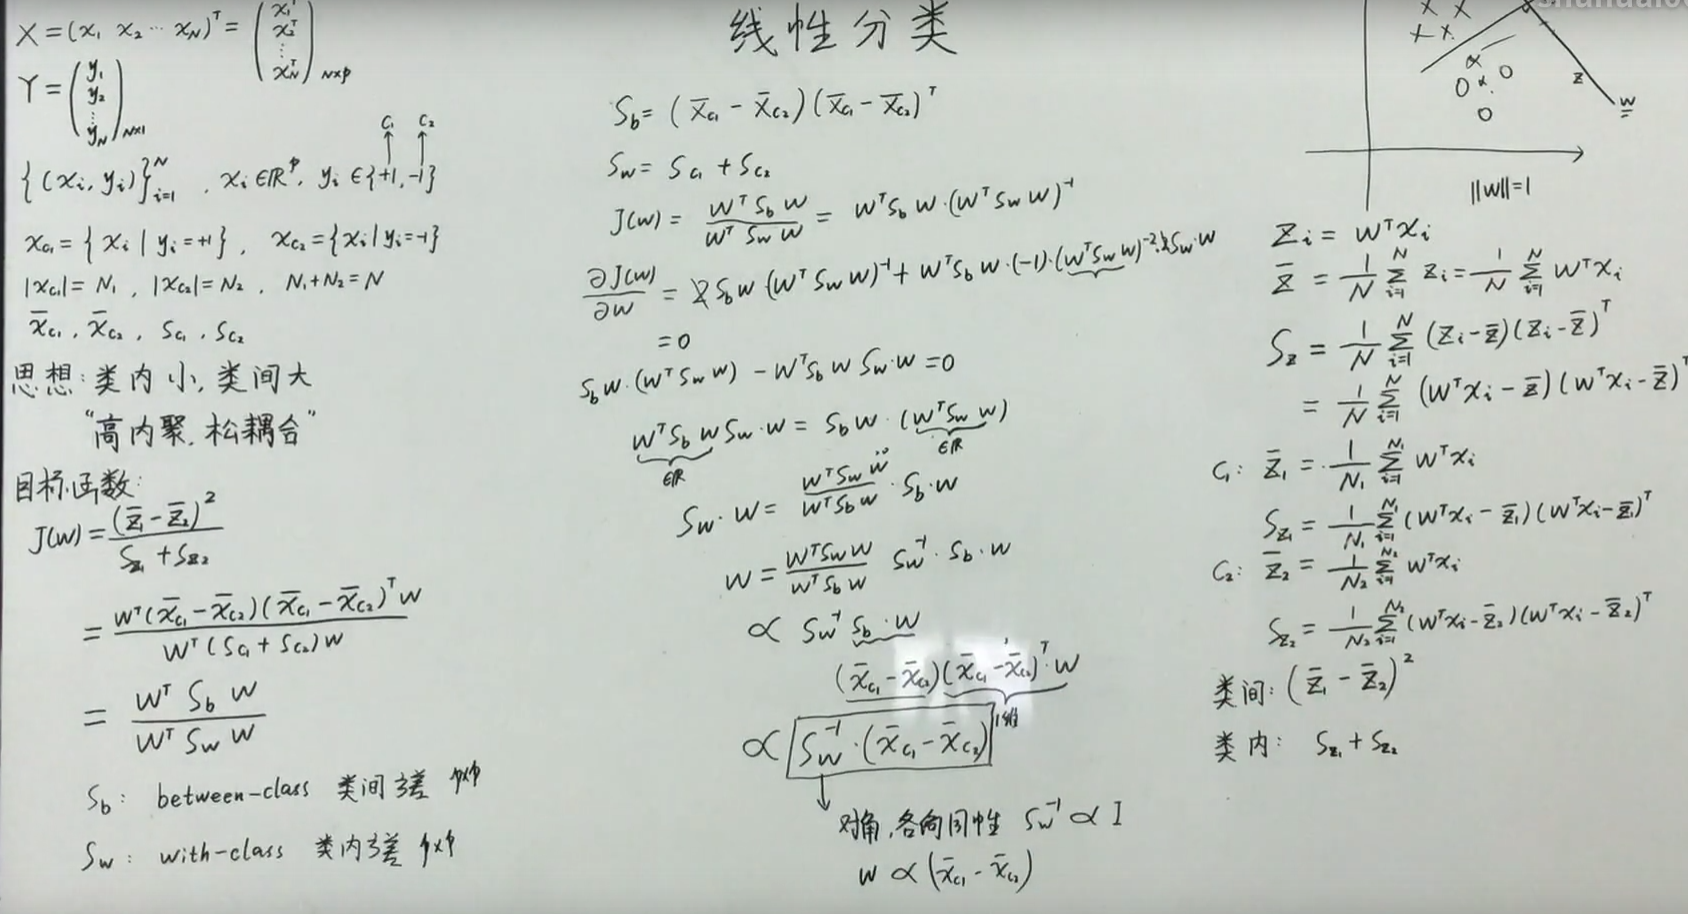 线性分类
X = (x₁ x₂ ⋯ x_N)ᵀ = (x₁ᵀ x₂ᵀ ⋮ x_Nᵀ)_{N×p}
Y = (y₁ y₂ ⋮ y_N)_{N×1}
C₁ C₂
{(xᵢ, yᵢ)}ᵢ₌₁ᴺ , xᵢ∈ℝᵖ, yᵢ∈{+1, -1}
x_{c₁} = {xᵢ | yᵢ=+1}, x_{c₂} = {xᵢ | yᵢ=-1}
|x_{c₁}| = N₁, |x_{c₂}| = N₂, N₁+N₂=N
x̄_{c₁}, x̄_{c₂}, S_{c₁}, S_{c₂}
思想: 类内小, 类间大
"高内聚, 松耦合"
目标函数:
J(w) = (z̄₁ - z̄₂)² / (S_{z₁} + S_{z₂})
= wᵀ(x̄_{c₁} - x̄_{c₂})(x̄_{c₁} - x̄_{c₂})ᵀw / wᵀ(S_{c₁} + S_{c₂})w
= wᵀ S_b w / wᵀ S_w w
S_b: between-class 类间方差 p×p
S_w: with-class 类内方差 p×p
S_b = (x̄_{c₁} - x̄_{c₂})(x̄_{c₁} - x̄_{c₂})ᵀ
S_w = S_{c₁} + S_{c₂}
J(w) = wᵀ S_b w / wᵀ S_w w = wᵀ S_b w · (wᵀ S_w w)⁻¹
∂J(w)/∂w = 2 S_b w (wᵀ S_w w)⁻¹ + wᵀ S_b w · (-1) · (wᵀ S_w w)⁻² · 2 S_w · w
= 0
S_b w · (wᵀ S_w w) - wᵀ S_b w S_w · w = 0
wᵀ S_b w S_w · w = S_b w · (wᵀ S_w w)
∈ℝ ∈ℝ
S_w · w = wᵀ S_w w / wᵀ S_b w · S_b · w
w = wᵀ S_w w / wᵀ S_b w S_w⁻¹ · S_b · w
∝ S_w⁻¹ S_b · w
(x̄_{c₁} - x̄_{c₂})(x̄_{c₁} - x̄_{c₂})ᵀ · w
1维
∝ S_w⁻¹ · (x̄_{c₁} - x̄_{c₂})
对角, 各向同性 S_w⁻¹ ∝ I
w ∝ (x̄_{c₁} - x̄_{c₂})
z
w
‖w‖=1
zᵢ = wᵀxᵢ
z̄ = 1/N Σᵢ₌₁ᴺ zᵢ = 1/N Σᵢ₌₁ᴺ wᵀxᵢ
S_z = 1/N Σᵢ₌₁ᴺ (zᵢ - z̄)(zᵢ - z̄)ᵀ
= 1/N Σᵢ₌₁ᴺ (wᵀxᵢ - z̄)(wᵀxᵢ - z̄)ᵀ
C₁: z̄₁ = 1/N₁ Σᵢ₌₁^{N₁} wᵀxᵢ
S_{z₁} = 1/N₁ Σᵢ₌₁^{N₁} (wᵀxᵢ - z̄₁)(wᵀxᵢ - z̄₁)ᵀ
C₂: z̄₂ = 1/N₂ Σᵢ₌₁^{N₂} wᵀxᵢ
S_{z₂} = 1/N₂ Σᵢ₌₁^{N₂} (wᵀxᵢ - z̄₂)(wᵀxᵢ - z̄₂)ᵀ
类间: (z̄₁ - z̄₂)²
类内: S_{z₁} + S_{z₂}